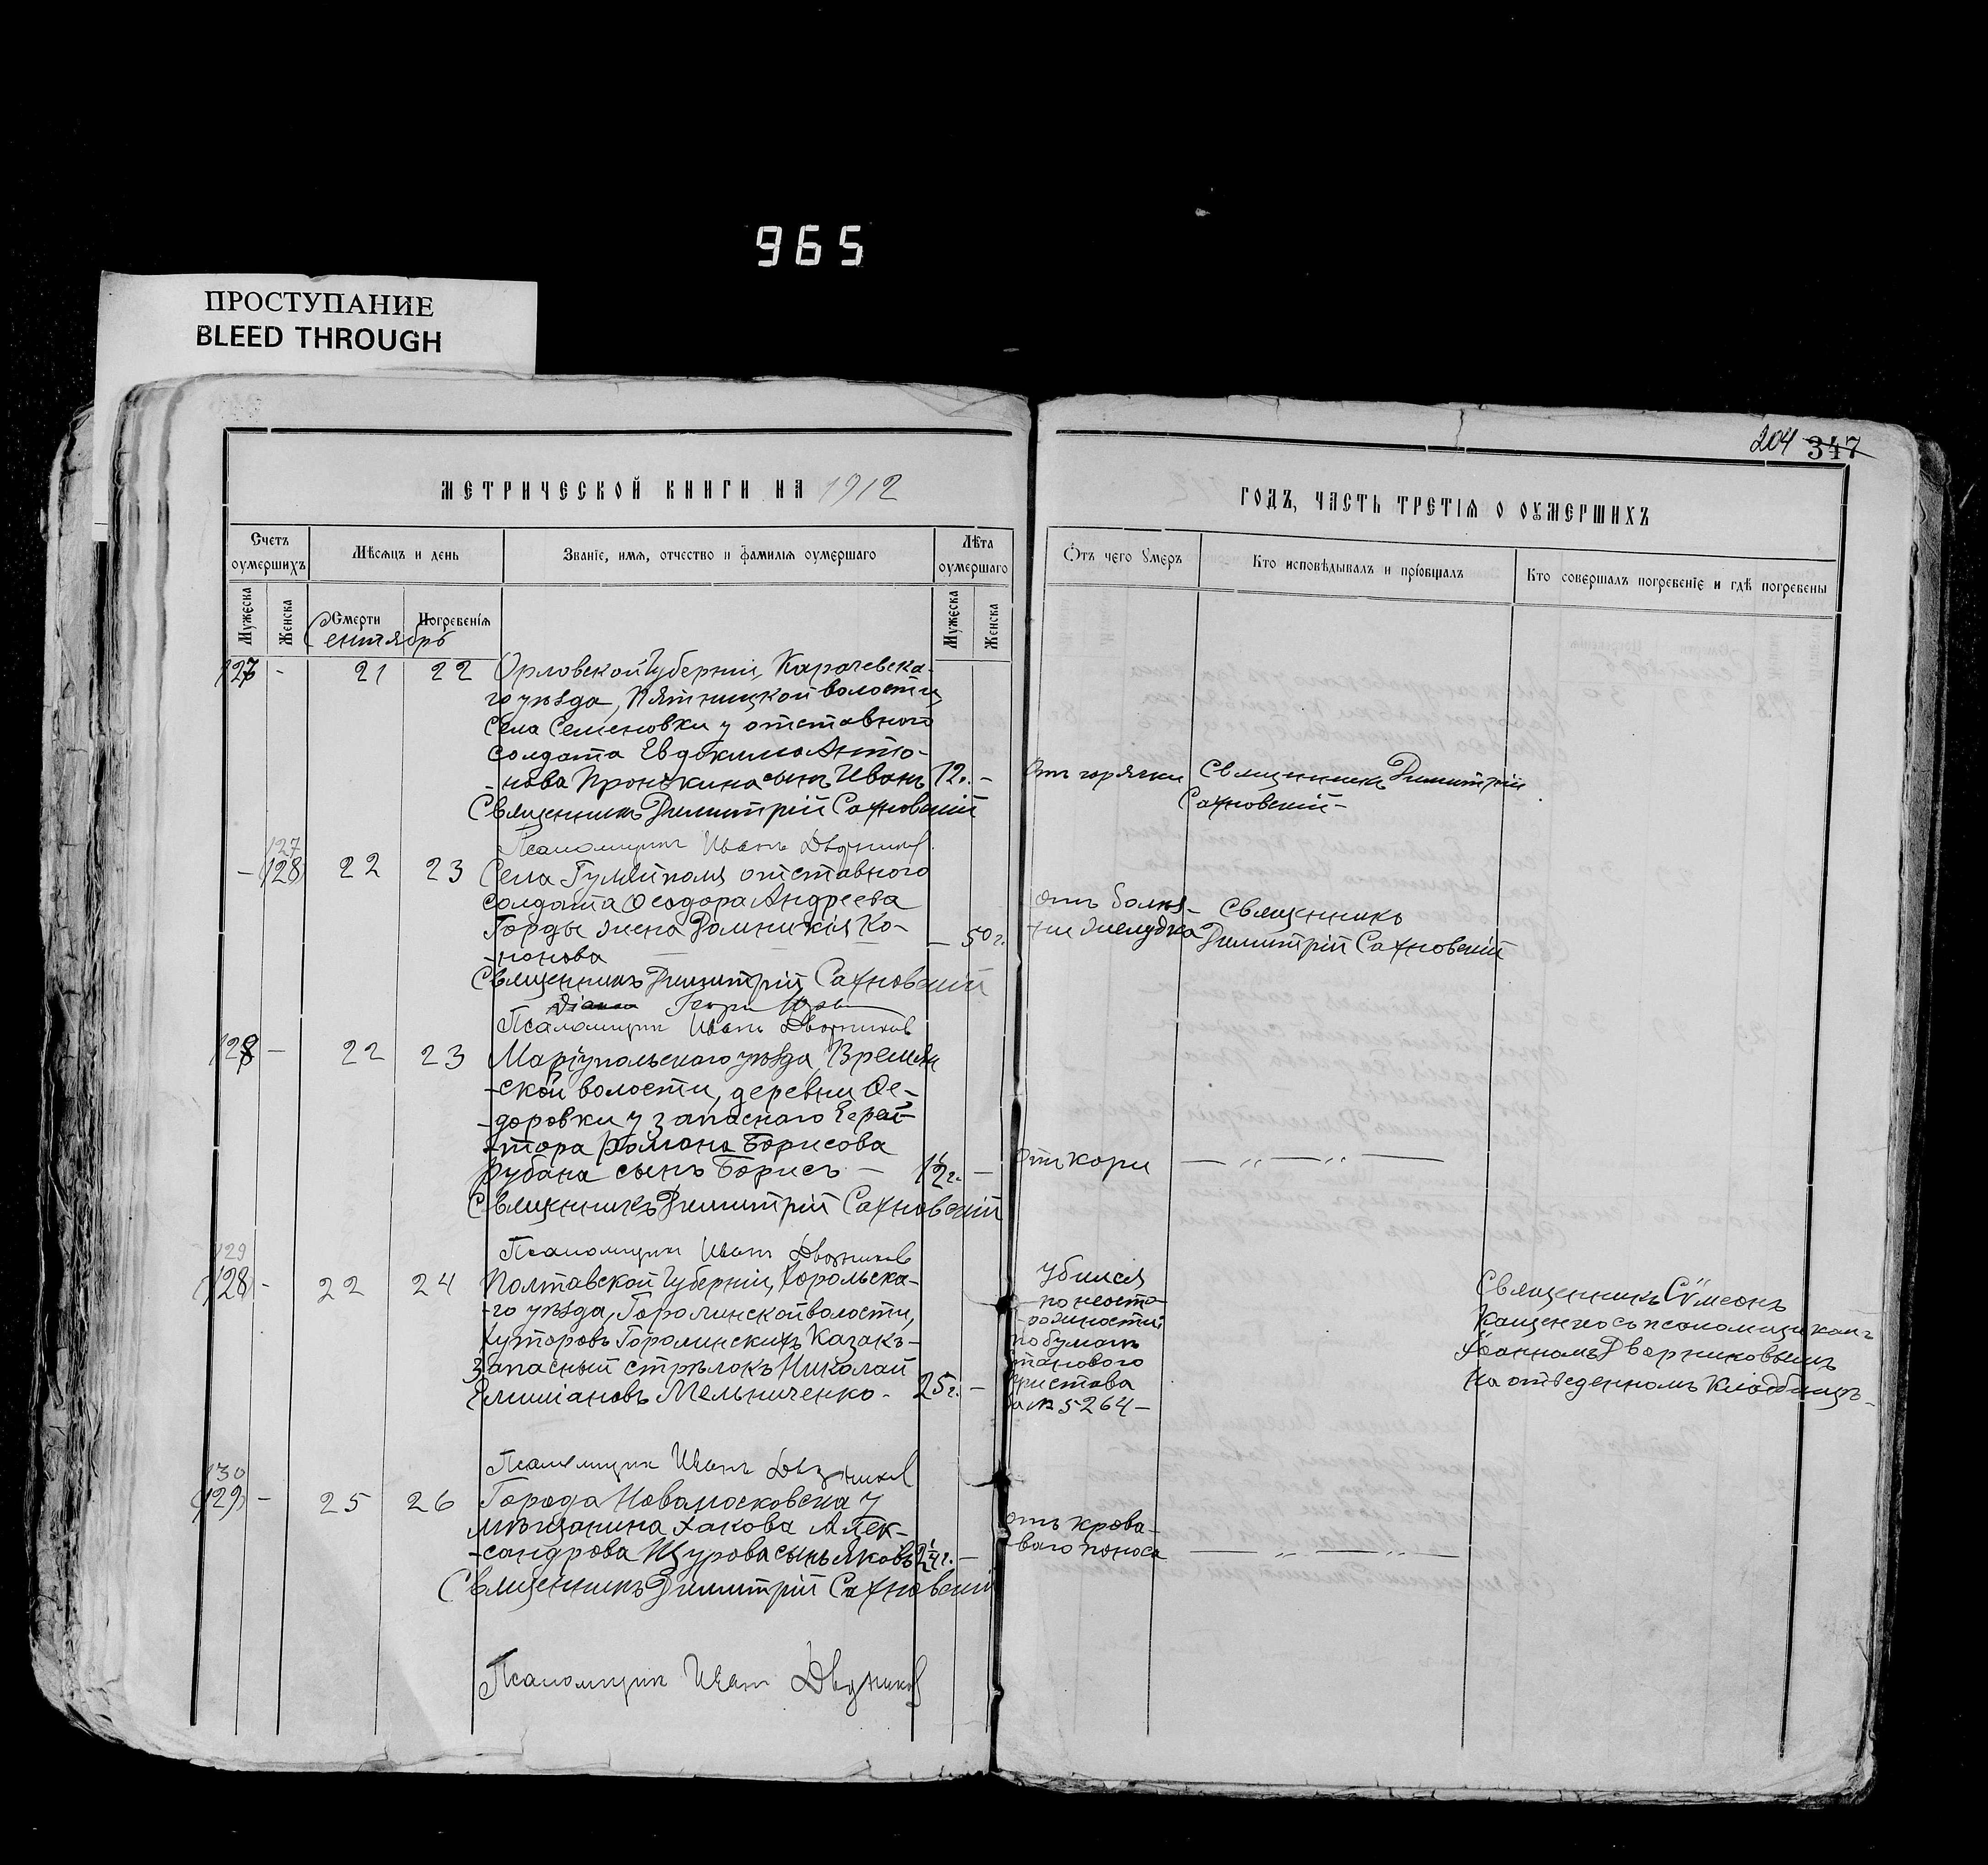 965
ПРОСТУПАНИЕ
BLEED THROUGH
204 347
МЕТРИЧЕСКОЙ КНИГИ НА 1912
ГОДЪ, ЧАСТЬ ТРЕТІЯ О ОУМЕРШИХЪ
Счетъ оумершихъ
Мѣсяцъ и день
Званіе, имя, отчество и фамилія оумершаго
Лѣта оумершаго
Отъ чего умеръ
Кто исповѣдывалъ и пріобщалъ
Кто совершалъ погребеніе и гдѣ погребены
Мужеска
Женска
Смерти
Погребенія
Мужеска
Женска
Сентябрь
127 - 21 22 Орловской Губерніи, Карачевска-
го уѣзда, Пятницкой волости,
села Семеновки у отставного
солдата Евдокима Анто-
-нова Пронькина сынъ Иванъ 12. - Отъ горячки Священникъ Димитрій
Священникъ Димитрій Сахновскій Сахновскій-
Псаломщикъ Иванъ Дворниковъ
127
- (128) 22 23 Села Гуляйполя отставного
солдата Ѳеодора Андреева
Горды жена Домникія Ко-
-нонова - 50 г. отъ болѣз- Священникъ
-ни желудка Димитрій Сахновскій
Священникъ Димитрій Сахновскій
Псаломщикъ Иванъ Дворниковъ
128 - 22 23 Маріупольскаго уѣзда, Времьев
-ской волости, деревни Ѳе-
-доровки у запаснаго Ефрей-
-тора Романа Борисова
Рубана сынъ Борисъ - 1½ г. - Отъ кори — " — " —
Священникъ Димитрій Сахновскій
Псаломщикъ Иванъ Дворниковъ
129
(128) - 22 24 Полтавской Губерніи, Хорольска-
-го уѣзда, Горошинской волости,
хуторовъ Горошинскихъ Казакъ-
запасный стрѣлокъ Николай
Емиліановъ Мельниченко - 25 г. -
убился
по неосто-
-рожности
по бумагѣ
станового
пристава
за № 5264 -
Священникъ Сѵмеонъ
Кащенко съ псаломщикомъ
Іоанномъ Дворниковымъ
на отведенномъ кладбищѣ-
Псаломщикъ Иванъ Дворниковъ
130
(129) - 25 26 Города Новомосковска у
мѣщанина Іакова Алек-
-сандрова Щурова сынъ Яковъ 2¼ г. -
отъ крова-
-ваго поноса — " — " —
Священникъ Димитрій Сахновскій
Псаломщикъ Иванъ Дворниковъ